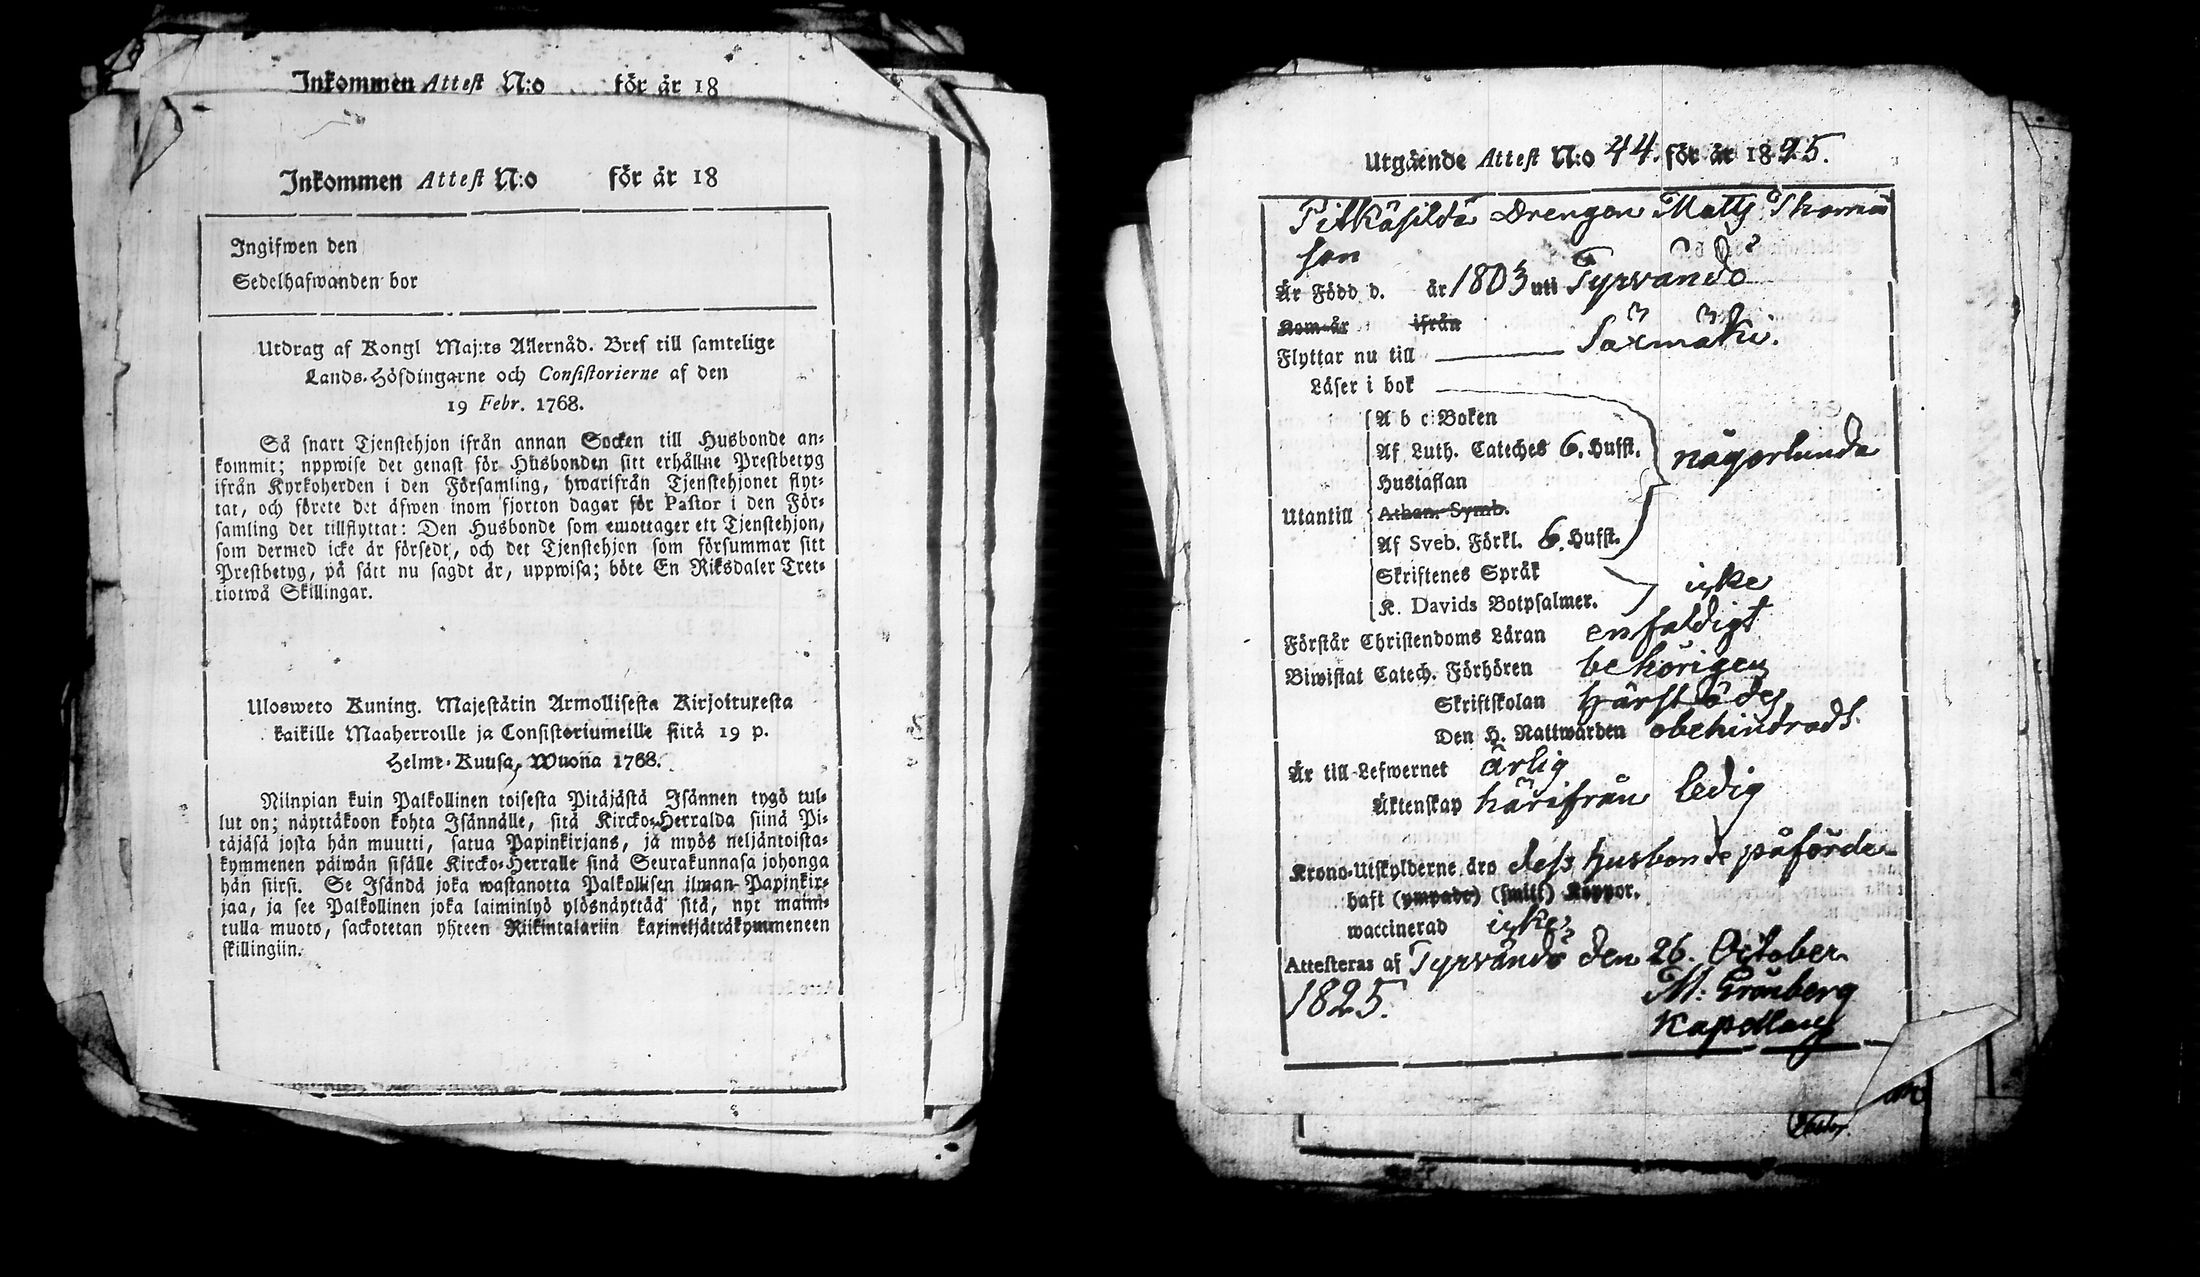 Inkommen Attest N:o för år 18
Inkommen Attest N:o för år 18
Ingifwen den
Sedelhafwanden bor
Utdrag af Kongl Maj:ts Allernåd. Bref till samtelige
Lands-Höfdingarne och Consistorierne af den
19 Febr. 1768.
Så snart Tjenstehjon ifrån annan Socken till Husbonde an-
kommit; uppwise det genast för Husbonden sitt erhållne Prestbetyg
ifrån Kyrkoherden i den Församling, hwarifrån Tjenstehjonet flyt-
tat, och förete det äfwen inom fjorton dagar för Pastor i den För-
samling det tillflyttat: Den Husbonde som emottager ett Tjenstehjon,
som dermed icke är försedt, och det Tjenstehjon som försummar sitt
Prestbetyg, på sätt nu sagdt är, uppwisa; böte En Riksdaler Tret-
tiotwå Skillingar.
Ulosweto Kuning. Majestätin Armollisesta Kirjoituxesta
kaikille Maaherroille ja Consistoriumeille siitä 19 p.
Helme-Kuusa, Wuona 1768.
Niinpian kuin Palkollinen toisesta Pitäjästä Isännen tygö tul-
lut on; näyttäkoon kohta Isännälle, sitä Kircko-Herralda siinä Pi-
täjäsä josta hän muutti, saatua Papinkirjans, ja myös neljäntoista-
kymmenen päiwän sisälle Kircko-Herralle sinä Seurakunnasa johonga
hän siirsi. Se Isändä joka wastanotta Palkollisen ilman Papinkir-
jaa, ja see Palkollinen joka laiminlyö ylösnäyttää sitä, nyt maini-
tulla muoto, sackotetan yhteen Riikintalariin kaxineljättäkymmeneen
skillingiin.
Utgående Attest N:o 44. för år 1825.
Pitkäsildä Drengen Matts Thomas
son
Är Född d. år 1803 uti Tyrvändö
Kom år ifrån
Flyttar nu till Särmäki.
Läser i bok
A b c Boken
Af Luth. Cateches 6. Hufst.
någorlunda
Hustaflan
Utantill Athan. Symb.
Af Sveb. Förkl. 6. Hufst.
Skriftenes Språk
icke
K. Davids Botpsalmer.
Förstår Christendoms Läran enfaldigt
Biwistat Catech. Förhören behörigen
Skriftskolan härstädes
Den H. Nattwarden obehindradt.
Är till Lefwernet ärlig
Äktenskap härifrån ledig
Krono-Utskylderne äro dess husbonde påförde
haft (ympade) (smitt) Koppor.
waccinerad icke
Attesteras af Tyrvändö den 26. October
1825. M: Grönberg
Kapellan